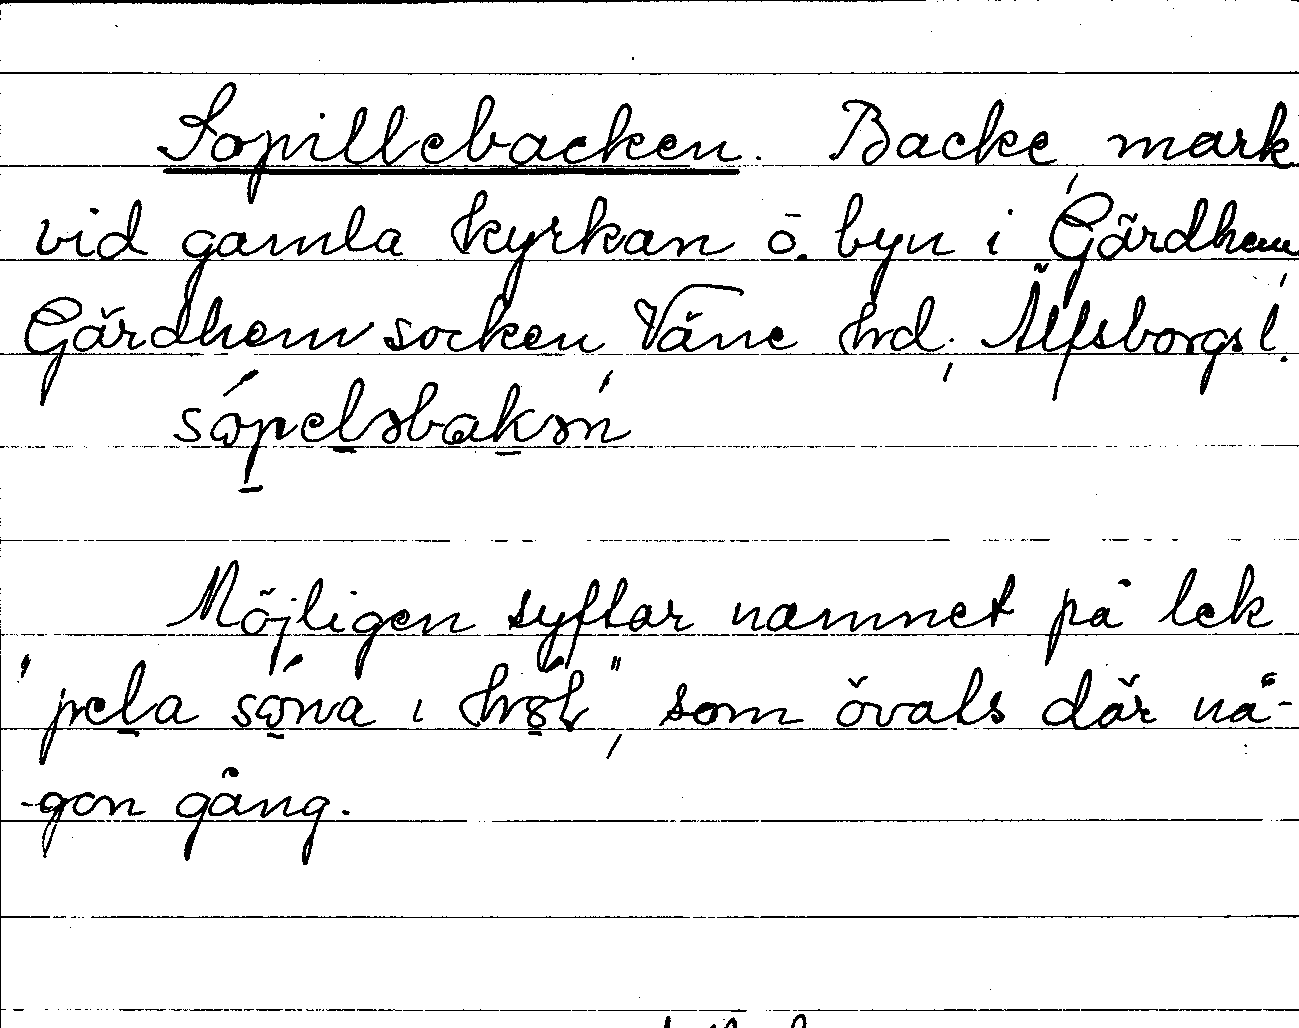 Sopillebacken. Backe, mark
vid gamla kyrkan ö. byn i Gärdhem,
Gärdhem socken, Väne hrd, Älfsborgs l.
sópelsbakǝn

Möjligen syftar namnet på lek
"pela sóna i", som övats där nå-
-gon gång.